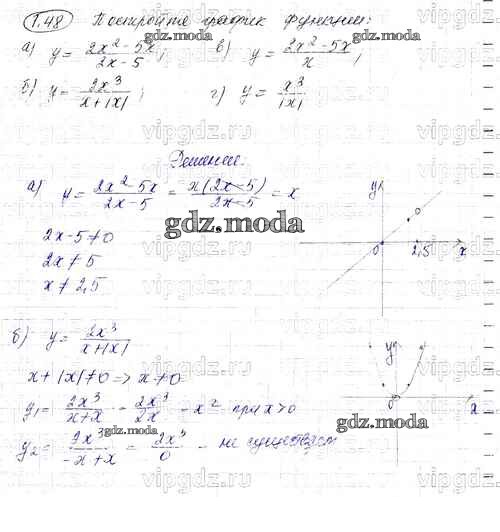 1.48 Постройте график функции:
а) y = 2x²-5x / 2x-5 ; в) y = 2x²-5x / x ,
б) y = 2x³ / x+|x| ; г) y = x³ / |x|
Решение.
а) y = 2x²-5x / 2x-5 = x(2x-5) / 2x-5 = x
gdz.moda
2x-5≠0
2x≠5
x≠2,5
y
0 2,5 x
б) y = 2x³ / x+|x|
x+|x|≠0 => x≠0
y₁ = 2x³ / x+x = 2x³ / 2x = x² при x>0
y₂ = 2x³ / -x+x = 2x³ / 0 - не существует
y
0 x
gdz.moda
vipgdz.ru